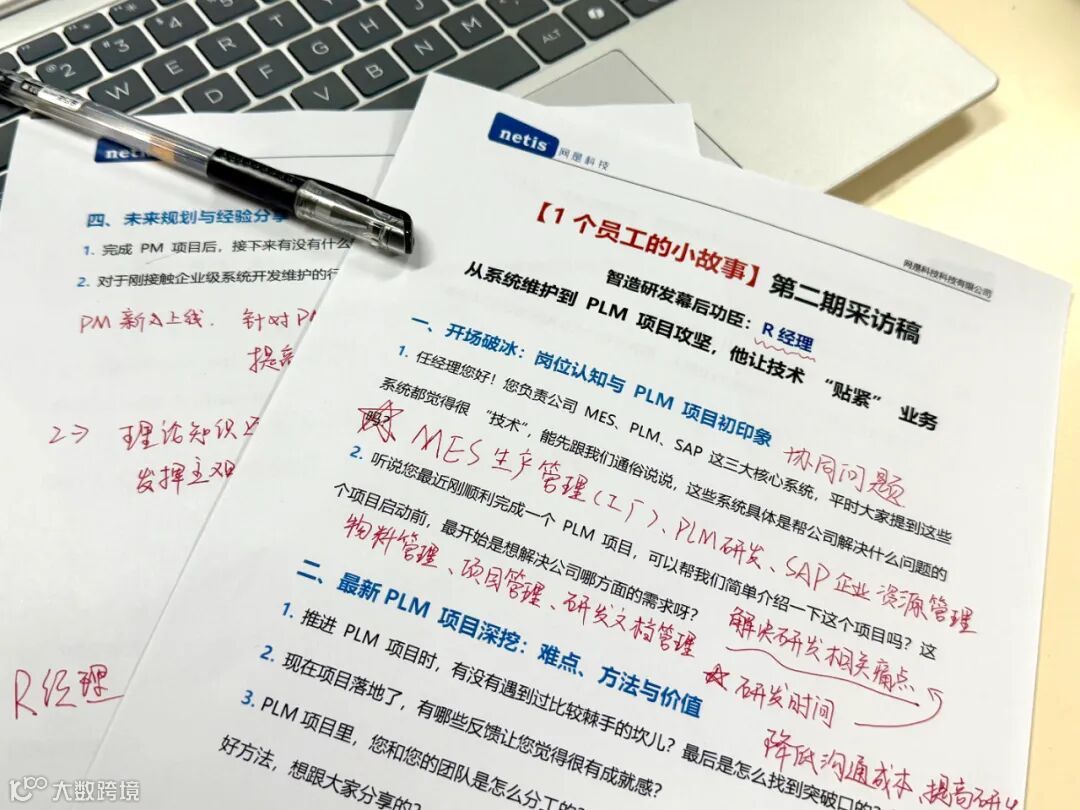 netis
网是科技
网是科技科技有限公司
【1个员工的小故事】第二期采访稿
智造研发幕后功臣：R经理
从系统维护到 PLM 项目攻坚，他让技术 “贴紧” 业务
一、开场破冰：岗位认知与 PLM 项目初印象
1. 任经理您好！您负责公司 MES、PLM、SAP 这三大核心系统，平时大家提到这些
系统都觉得很 “技术”，能先跟我们通俗说说，这些系统具体是帮公司解决什么问题的
吗？
协同问题
MES生产管理(工厂)、PLM研发、SAP企业资源管理
2. 听说您最近刚顺利完成一个 PLM 项目，可以帮我们简单介绍一下这个项目吗？这
个项目启动前，最开始是想解决公司哪方面的需求呀？
物料管理、项目管理、研发文档管理
解决研发相关痛点
研发时间
降低沟通成本、提高研发
二、最新 PLM 项目深挖：难点、方法与价值
1. 推进 PLM 项目时，有没有遇到过比较棘手的坎儿？最后是怎么找到突破口的？
2. 现在项目落地了，有哪些反馈让您觉得很有成就感？
3. PLM 项目里，您和您的团队是怎么分工的？
好方法，想跟大家分享的？
netis
四、未来规划与经验分享
1. 完成 PM 项目后，接下来有没有什么
2. 对于刚接触企业级系统开发维护的行
PM 新上线. 针对PM
提高
2→ 理论知识
发挥主观
R经理
大数跨境